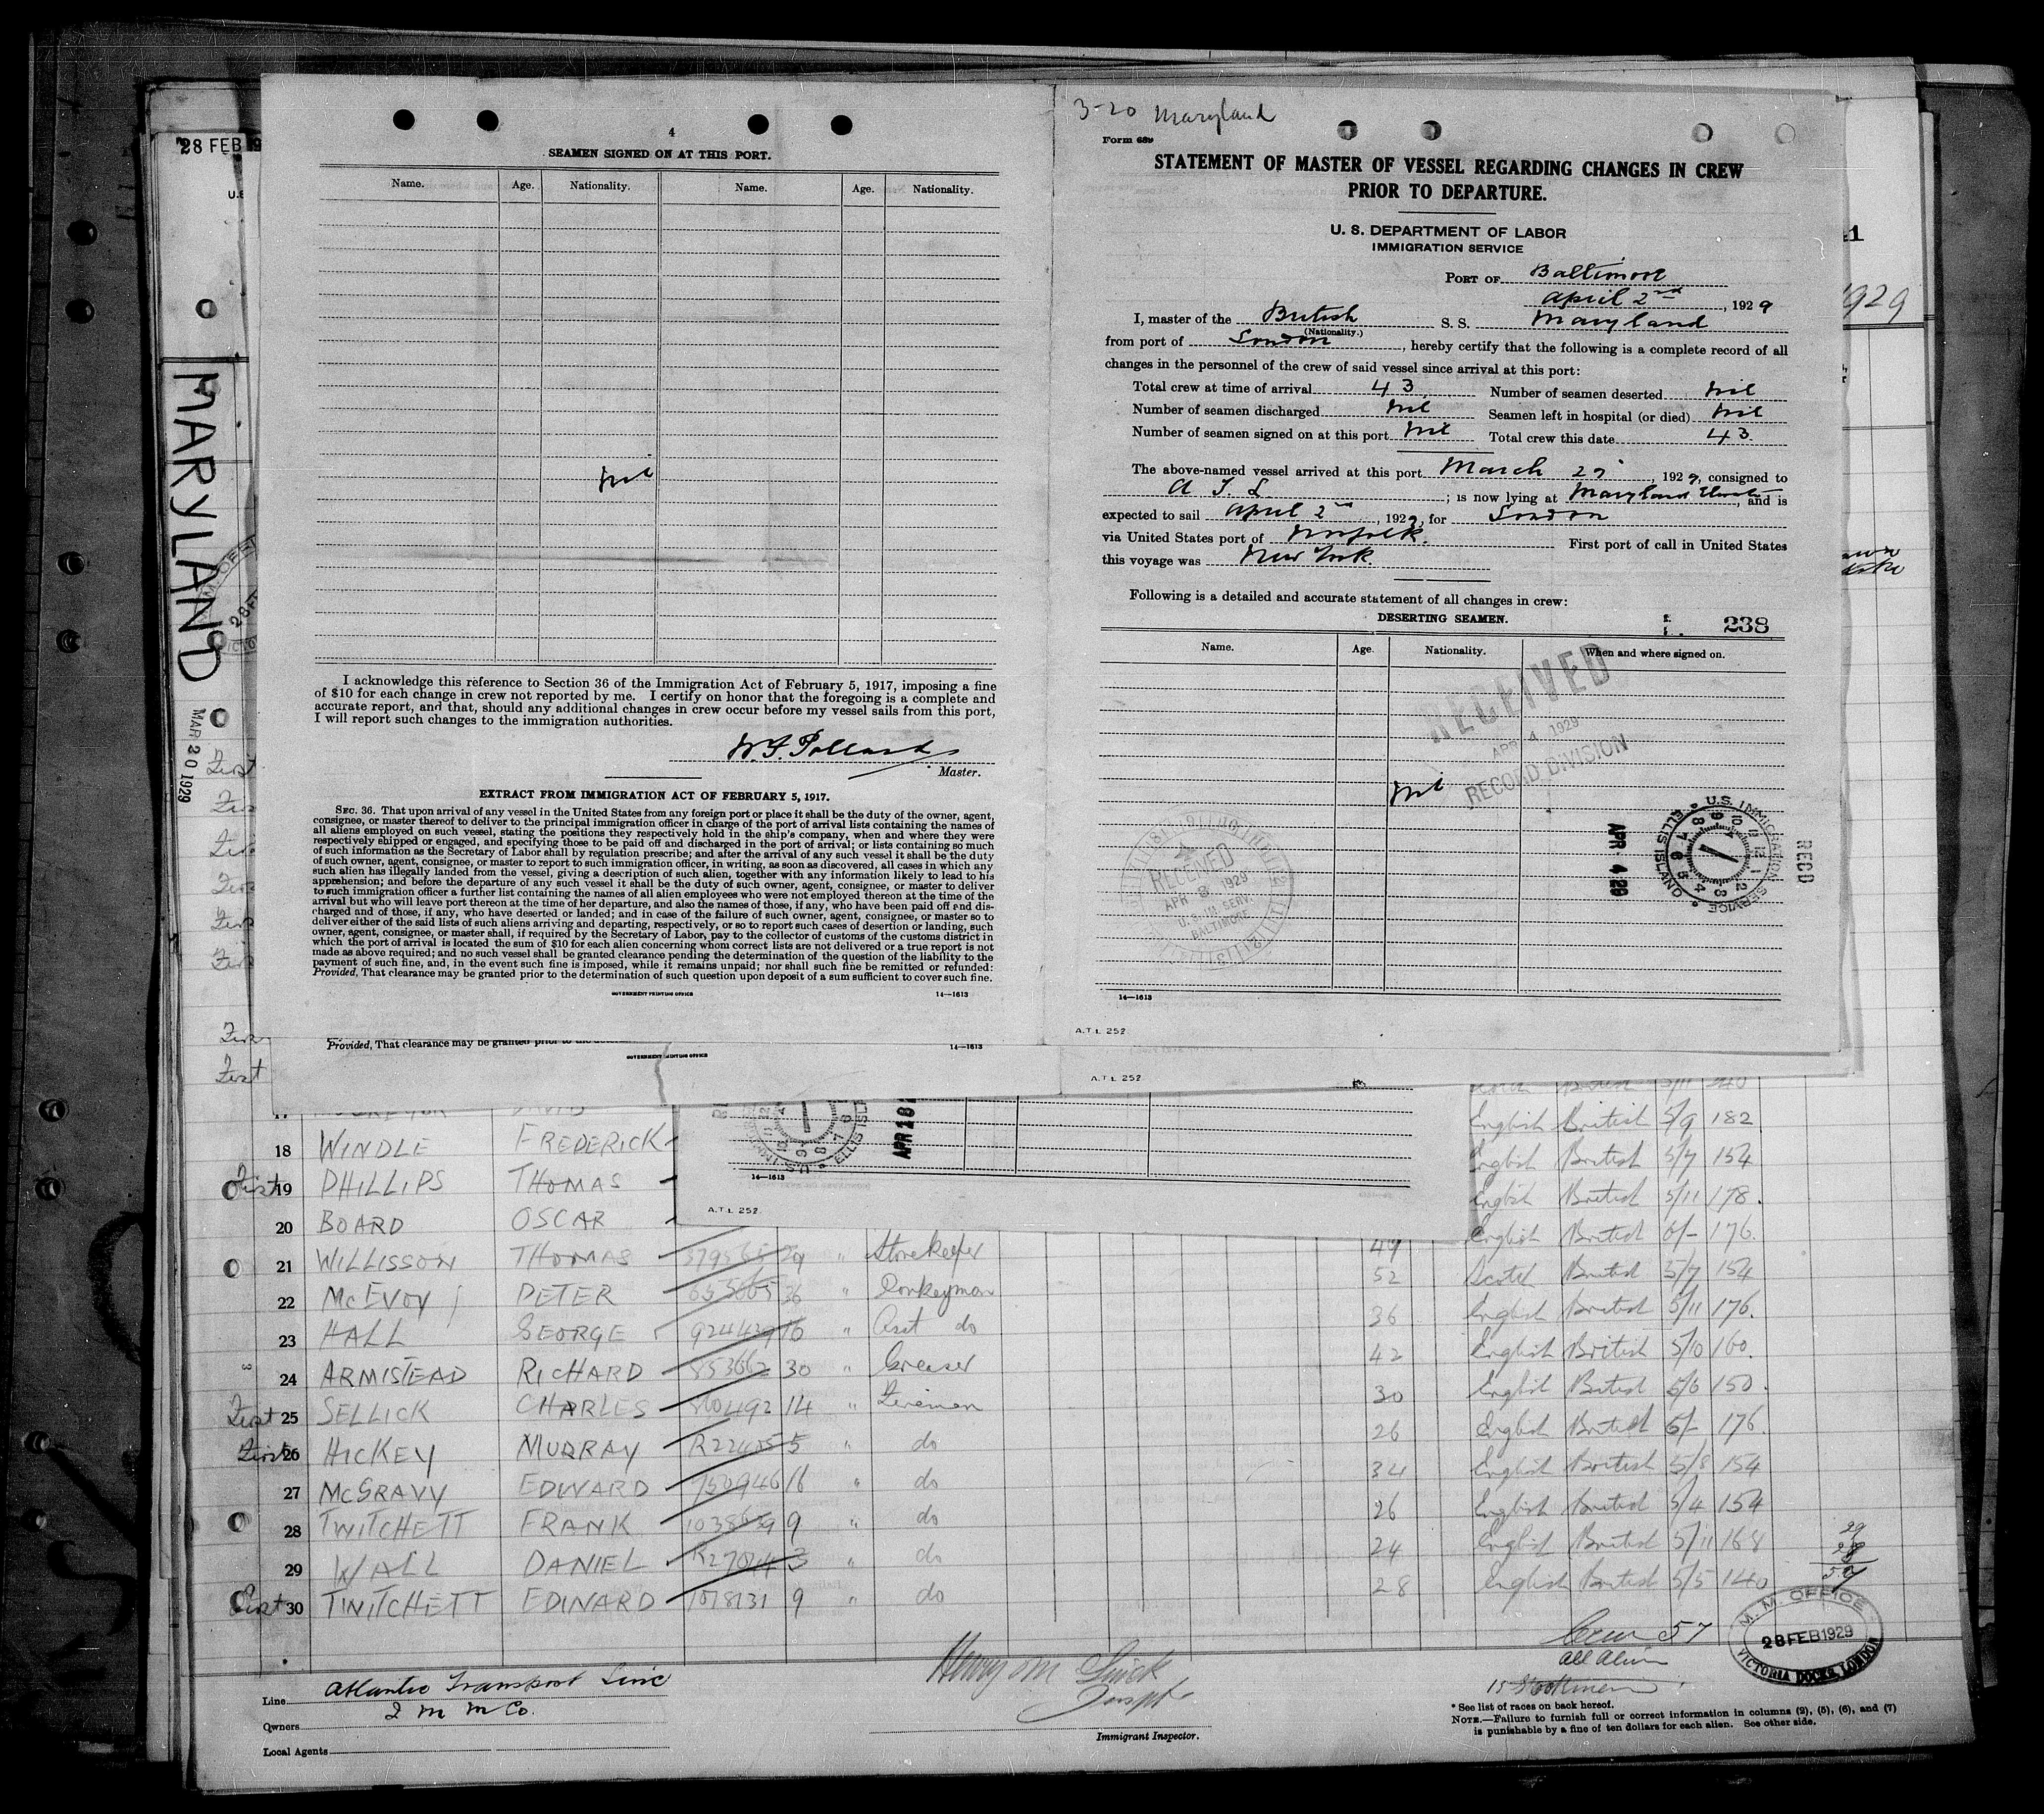 28 FEB
MARYLAND
MAR 20 1929
4
SEAMEN SIGNED ON AT THIS PORT.
Name. Age. Nationality. Name. Age. Nationality.
Nil
I acknowledge this reference to Section 36 of the Immigration Act of February 5, 1917, imposing a fine
of $10 for each change in crew not reported by me. I certify on honor that the foregoing is a complete and
accurate report, and that, should any additional changes in crew occur before my vessel sails from this port,
I will report such changes to the immigration authorities.
W. F. Pollard
Master.
EXTRACT FROM IMMIGRATION ACT OF FEBRUARY 5, 1917.
SEC. 36. That upon arrival of any vessel in the United States from any foreign port or place it shall be the duty of the owner, agent,
consignee, or master thereof to deliver to the principal immigration officer in charge of the port of arrival lists containing the names of
all aliens employed on such vessel, stating the positions they respectively hold in the ship's company, when and where they were
respectively shipped or engaged, and specifying those to be paid off and discharged in the port of arrival; or lists containing so much
of such information as the Secretary of Labor shall by regulation prescribe; and after the arrival of any such vessel it shall be the duty
of such owner, agent, consignee, or master to report to such immigration officer, in writing, as soon as discovered, all cases in which any
such alien has illegally landed from the vessel, giving a description of such alien, together with any information likely to lead to his
apprehension; and before the departure of any such vessel it shall be the duty of such owner, agent, consignee, or master to deliver
to such immigration officer a further list containing the names of all alien employees who were not employed thereon at the time of the
arrival but who will leave port thereon at the time of her departure, and also the names of those, if any, who have been paid off and dis-
charged and of those, if any, who have deserted or landed; and in case of the failure of such owner, agent, consignee, or master so to
deliver either of the said lists of such aliens arriving and departing, respectively, or so to report such cases of desertion or landing, such
owner, agent, consignee, or master shall, if required by the Secretary of Labor, pay to the collector of customs of the customs district in
which the port of arrival is located the sum of $10 for each alien concerning whom correct lists are not delivered or a true report is not
made as above required; and no such vessel shall be granted clearance pending the determination of the question of the liability to the
payment of such fine, and, in the event such fine is imposed, while it remains unpaid; nor shall such fine be remitted or refunded:
Provided, That clearance may be granted prior to the determination of such question upon deposit of a sum sufficient to cover such fine.
GOVERNMENT PRINTING OFFICE 14—1613
3-20 Maryland
Form 689
STATEMENT OF MASTER OF VESSEL REGARDING CHANGES IN CREW
PRIOR TO DEPARTURE.
U. S. DEPARTMENT OF LABOR
IMMIGRATION SERVICE
PORT OF Baltimore
April 2nd, 1929
I, master of the British S. S. Maryland
(Nationality.)
from port of London, hereby certify that the following is a complete record of all
changes in the personnel of the crew of said vessel since arrival at this port:
Total crew at time of arrival 43 Number of seamen deserted Nil
Number of seamen discharged Nil Seamen left in hospital (or died) Nil
Number of seamen signed on at this port Nil Total crew this date 43
The above-named vessel arrived at this port March 27, 1929, consigned to
A T L; is now lying at Maryland, and is
expected to sail April 2nd, 1929, for London
via United States port of Norfolk. First port of call in United States
this voyage was New York.
Following is a detailed and accurate statement of all changes in crew:
DESERTING SEAMEN. 238
Name. Age. Nationality. When and where signed on.
Nil
RECEIVED
APR 4 1929
RECORD DIVISION
RECEIVED
APR 8 1929
U. S. IM SERV.
BALTIMORE
APR 4 29
U.S. IMMIGRATION SERVICE ELLIS ISLAND
RECD
14—1613
A.T.L. 252
1929
Provided, That clearance may be granted prior to the
GOVERNMENT PRINTING OFFICE 14—1613
A.T.L. 252
APR 18
14—1613
A.T.L. 252
English British 5/9 182
18 WINDLE FREDERICK English British 5/7 154
First 19 PHILLIPS THOMAS English British 5/11 178
20 BOARD OSCAR 49 English British 6/- 176
21 WILLISSON THOMAS 29 " Storekeeper 52 Scotch British 5/7 154
22 McEVOY PETER 36 " Donkeyman 36 English British 5/11 176
23 HALL GEORGE 16 " Asst do 42 English British 5/10 160
24 ARMISTEAD RICHARD 853662 30 " Greaser 30 English British 5/6 150
First 25 SELLICK CHARLES 14 " Fireman 26 English British 6/- 176
First 26 HICKEY MURRAY 5 " do 34 English British 5/8 154
27 McGRAVY EDWARD 750946 16 " do 26 English British 5/4 154
28 TWITCHETT FRANK 9 " do 24 English British 5/11 168
29 WALL DANIEL 3 " do 28 English British 5/5 140
First 30 TWITCHETT EDWARD 1078131 9 " do
Crew 57
All Alien
M. M. OFFICE
28 FEB 1929
VICTORIA DOCKS, LONDON
Line Atlantic Transport Line
Owners I M M Co.
Local Agents
Immigrant Inspector.
* See list of races on back hereof.
NOTE.—Failure to furnish full or correct information in columns (2), (5), (6), and (7)
is punishable by a fine of ten dollars for each alien. See other side.